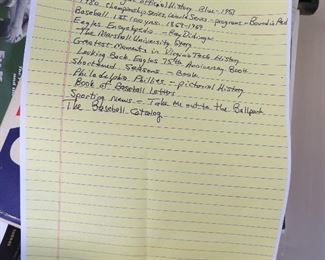 official History Blue - 1951
1980 Championship Series, World Series - programs -
Baseball 1st 100 yrs. 1869-1969
Eagles Encyclopedia - Ray Didinger
The Marshall University Story
Greatest Moments in Virginia Tech History
Looking Back Eagles 75th Anniversary Book
Shortened Seasons - Book
Philadelphia Phillies - pictorial History
Book of Baseball Letters
Sporting News - Take me out to the Ballpark
The Baseball Catalog